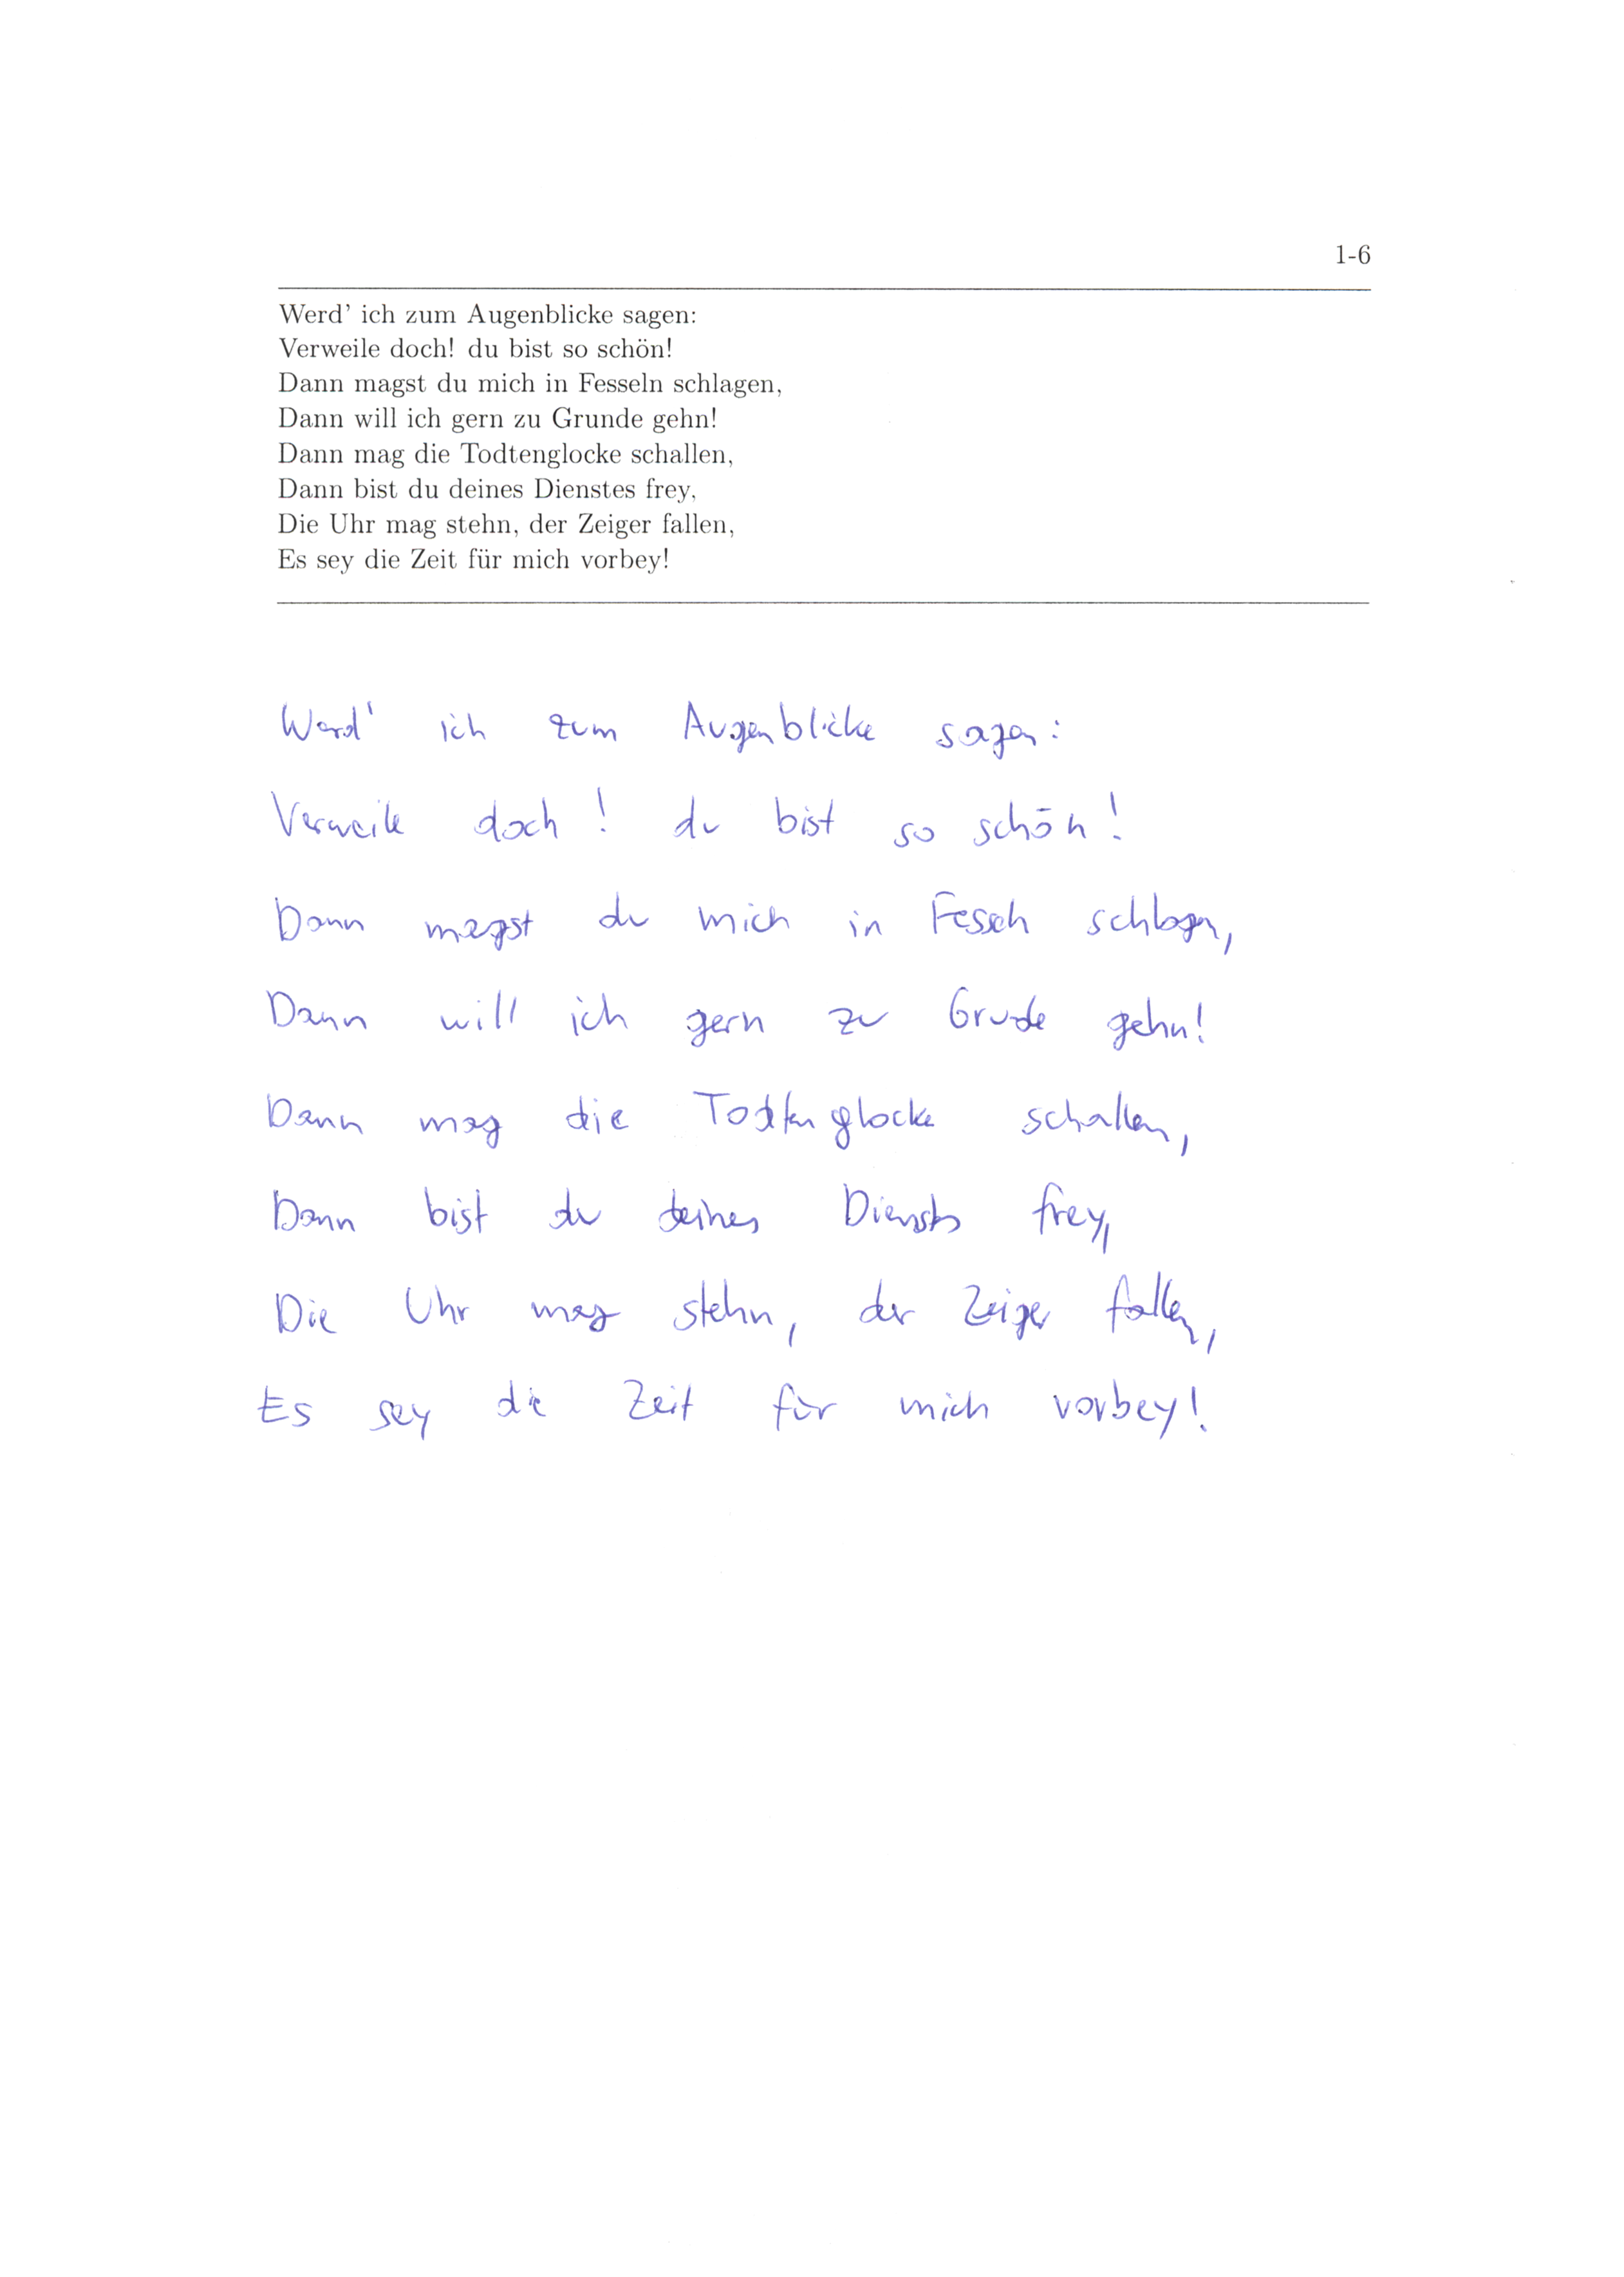 1-6
Werd' ich zum Augenblicke sagen:
Verweile doch! du bist so schön!
Dann magst du mich in Fesseln schlagen,
Dann will ich gern zu Grunde gehn!
Dann mag die Todtenglocke schallen,
Dann bist du deines Dienstes frey,
Die Uhr mag stehn, der Zeiger fallen,
Es sey die Zeit für mich vorbey!
Werd' ich zum Augenblicke sagen:
Verweile doch! du bist so schön!
Dann magst du mich in Fesseln schlagen,
Dann will ich gern zu Grunde gehn!
Dann mag die Todtenglocke schallen,
Dann bist du deines Dienstes frey,
Die Uhr mag stehn, der Zeiger fallen,
Es sey die Zeit für mich vorbey!